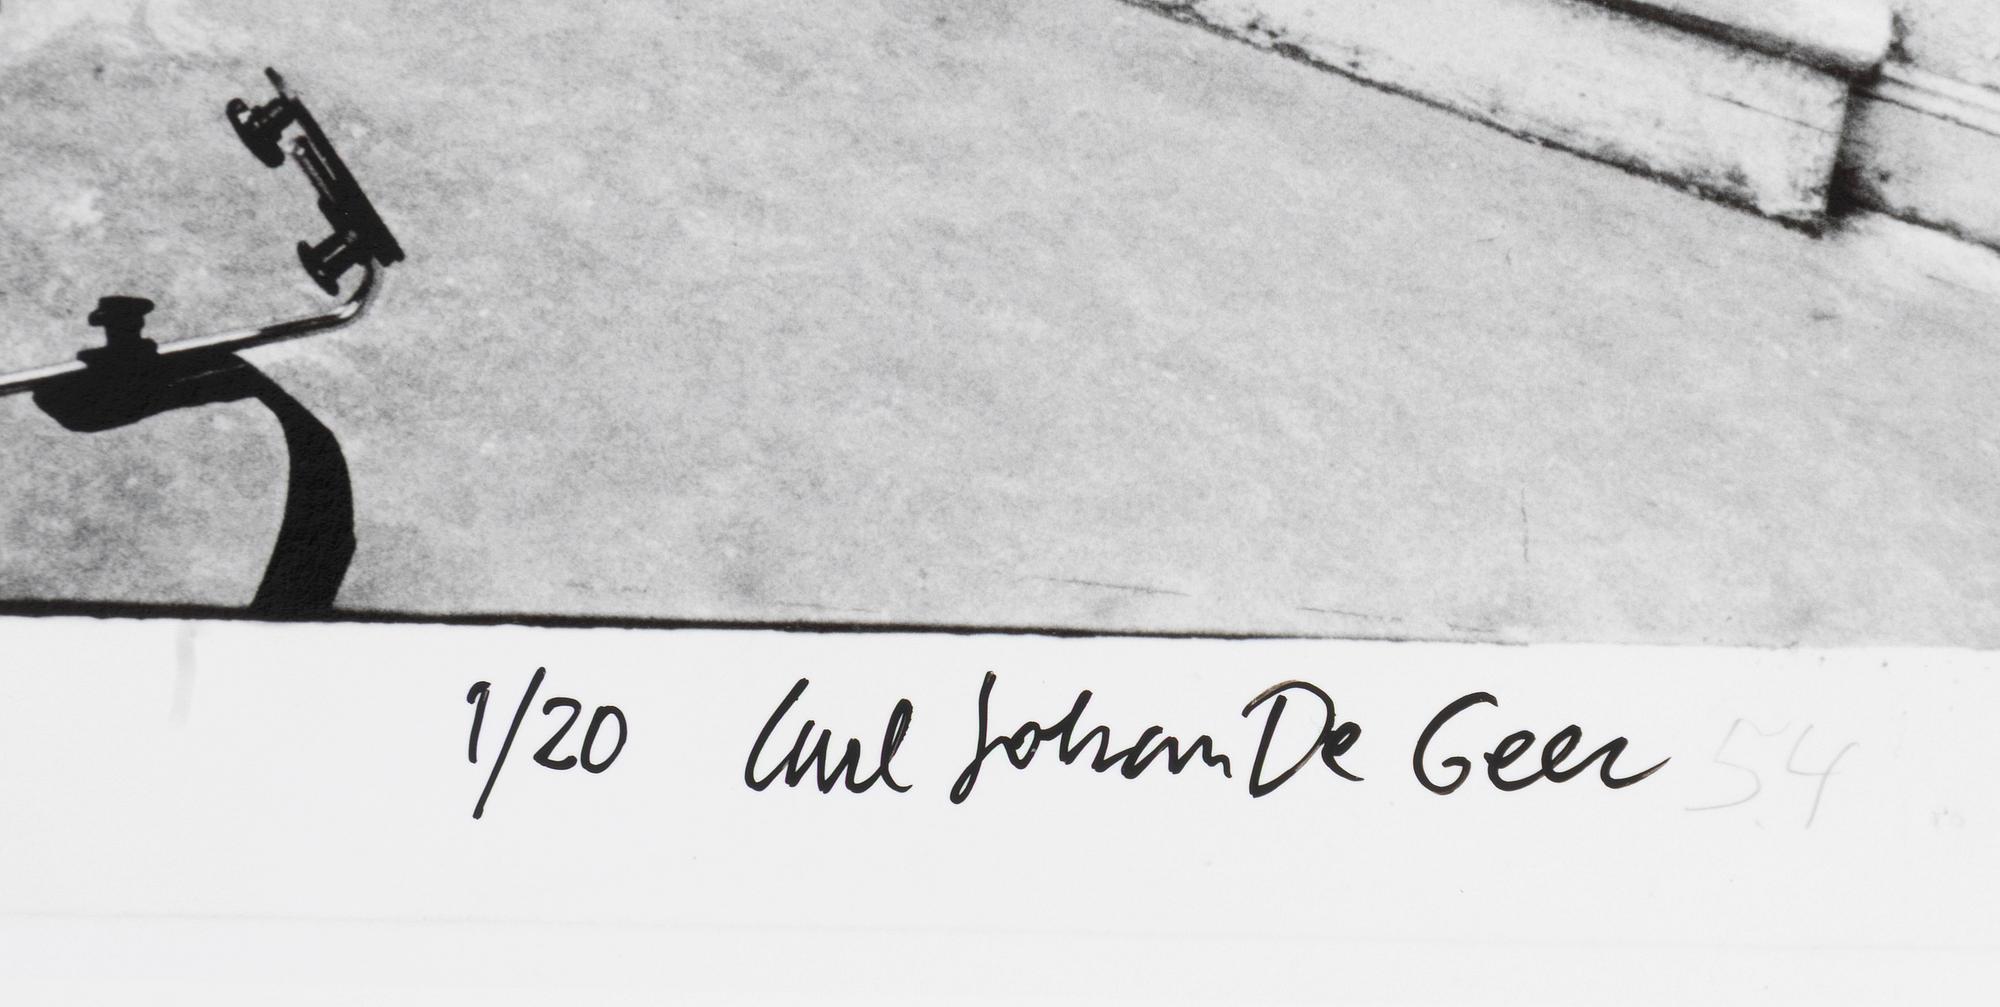 1/20 Carl Johan De Geer 54